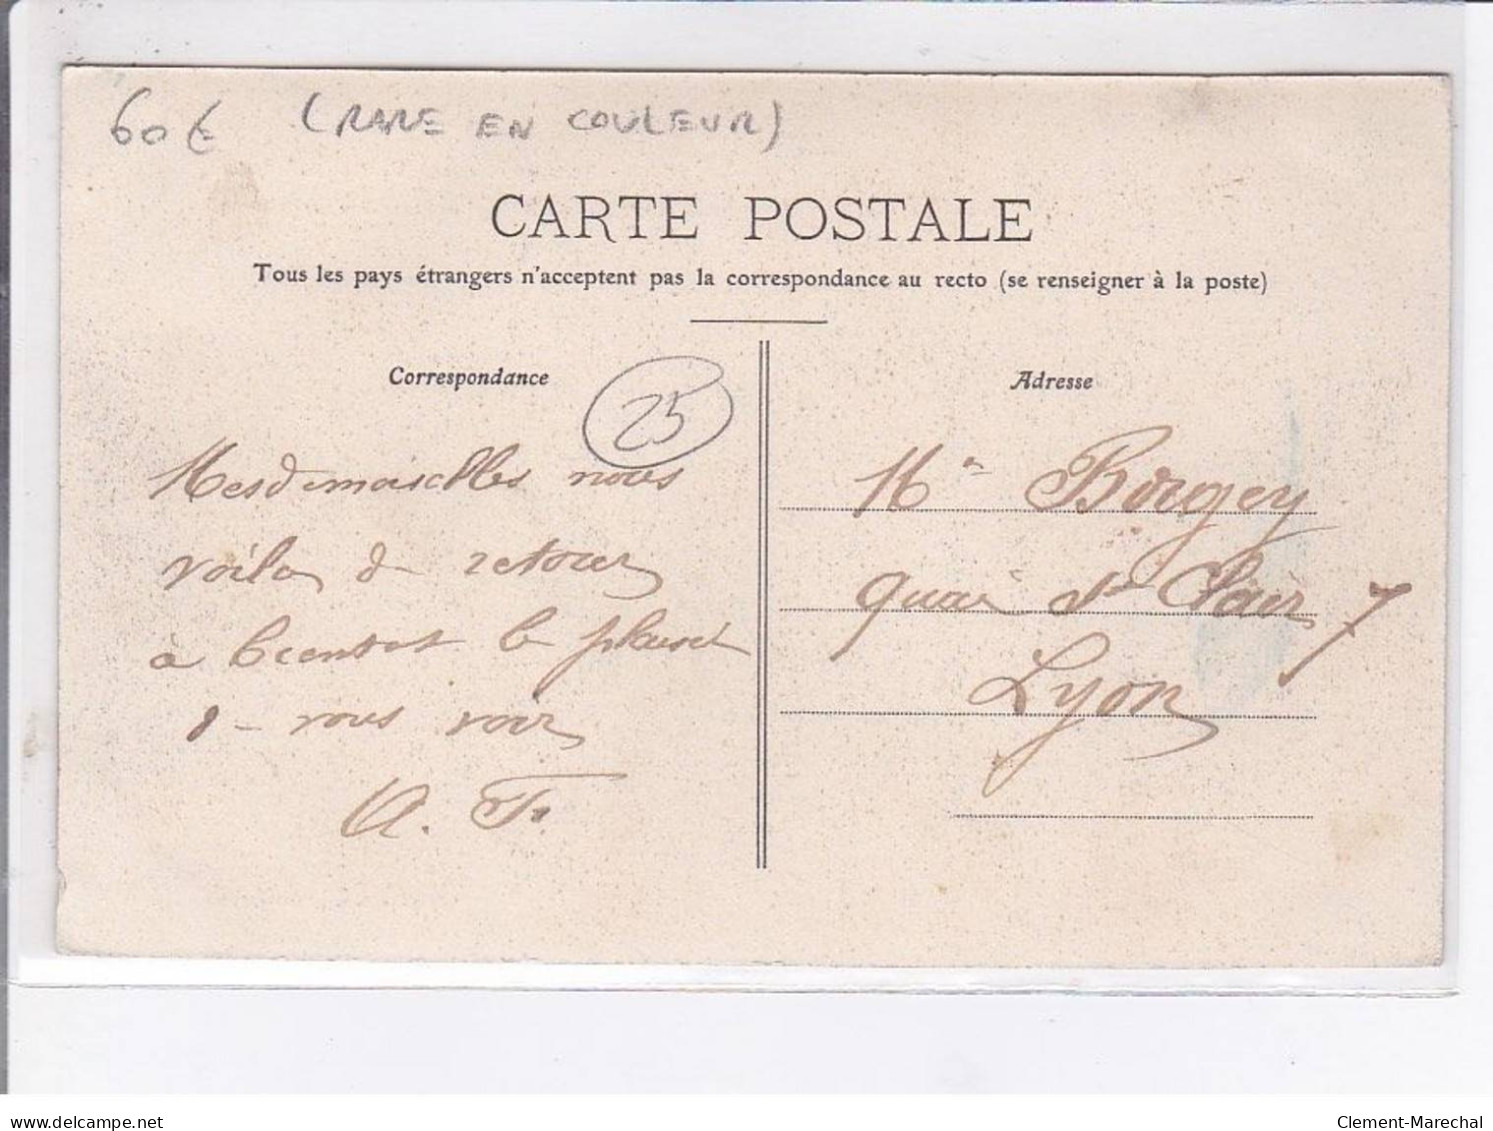 60€ (RARE EN COULEUR)
CARTE POSTALE
Tous les pays étrangers n'acceptent pas la correspondance au recto (se renseigner à la poste)
Correspondance
25
Mesdemoiselles nous
voila de retour
à bientot le plaisir
d- vous voir
A. F.
Adresse
Borgey
quai St Clair 7
Lyon
delcampe.net
Clement-Marechal